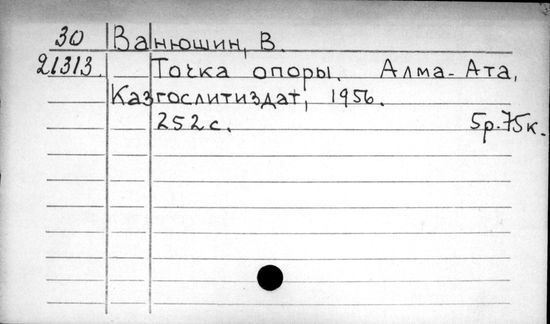 30 Ванюшин, В.
21313. Точка опоры. Алма-Ата,
Казгослитиздат, 1956.
252 с. 5р.75к.